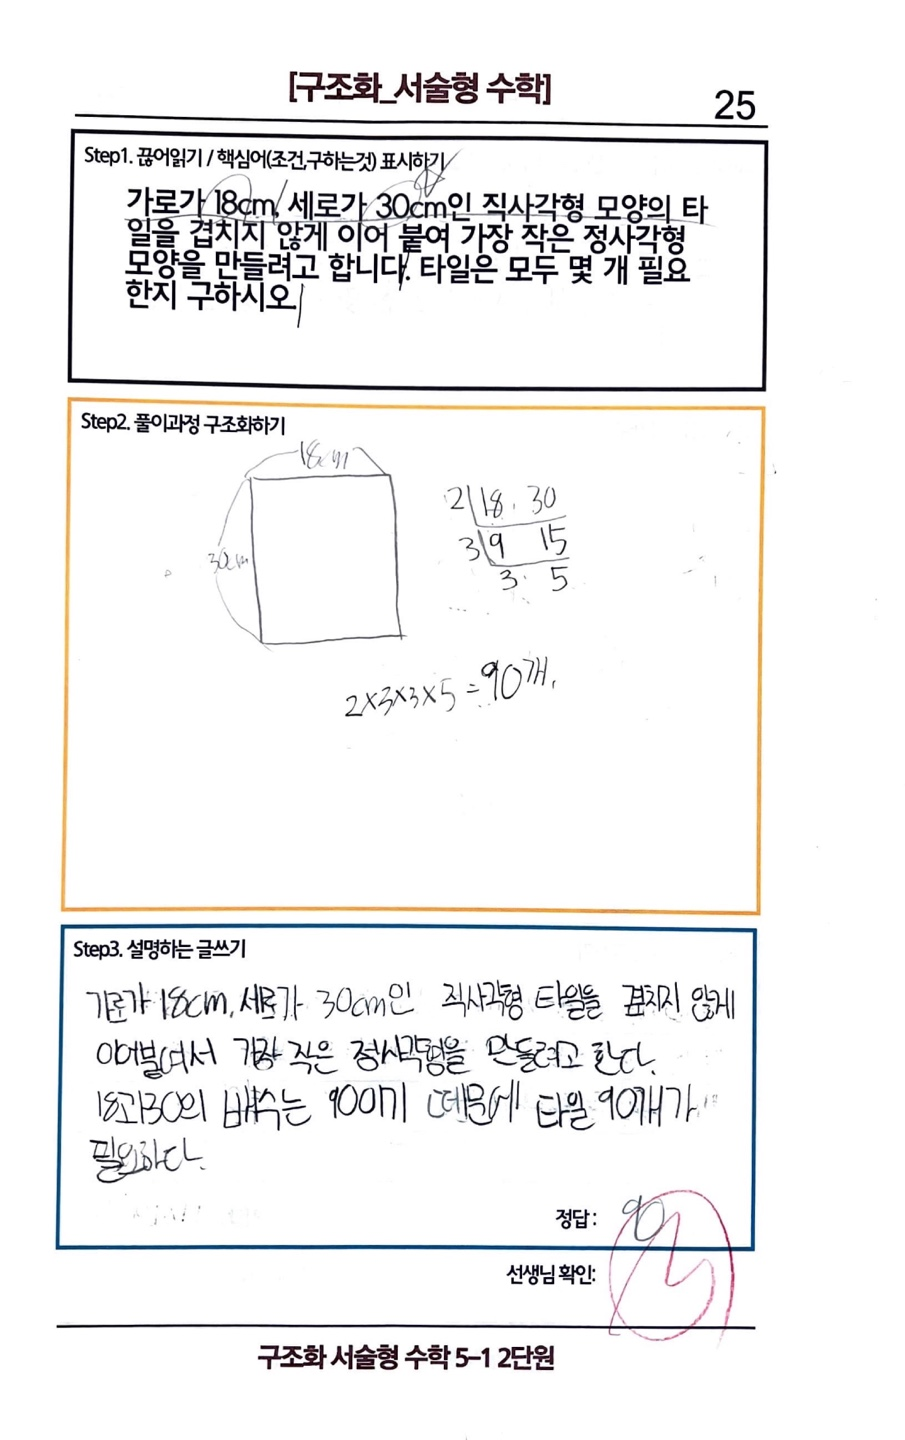 [구조화_서술형 수학]
25
Step1. 끊어읽기 / 핵심어(조건,구하는것) 표시하기
가로가 18cm, 세로가 30cm인 직사각형 모양의 타
일을 겹치지 않게 이어 붙여 가장 작은 정사각형
모양을 만들려고 합니다. 타일은 모두 몇 개 필요
한지 구하시오.
Step2. 풀이과정 구조화하기
18cm
30cm
2 18 30
3 9 15
3 5
2×3×3×5=90개.
Step3. 설명하는 글쓰기
가로가 18cm, 세로가 30cm인 직사각형 타일을 겹치지 않게
이어붙여서 가장 작은 정사각형을 만들려고 한다.
18과30의 배수는 90이기 때문에 타일 90개가
필요하다.
정답 : 90
선생님 확인:
구조화 서술형 수학 5-1 2단원